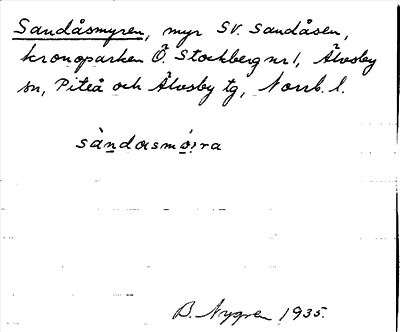 Sandåsmyren, myr SV. Sandåsen,
kronoparken Ö. Stockberg nr 1, Älvsby
sn, Piteå och Älvsby tg, Norrb. l.
sàndasmó̱ɩra
B. Nygren 1935.